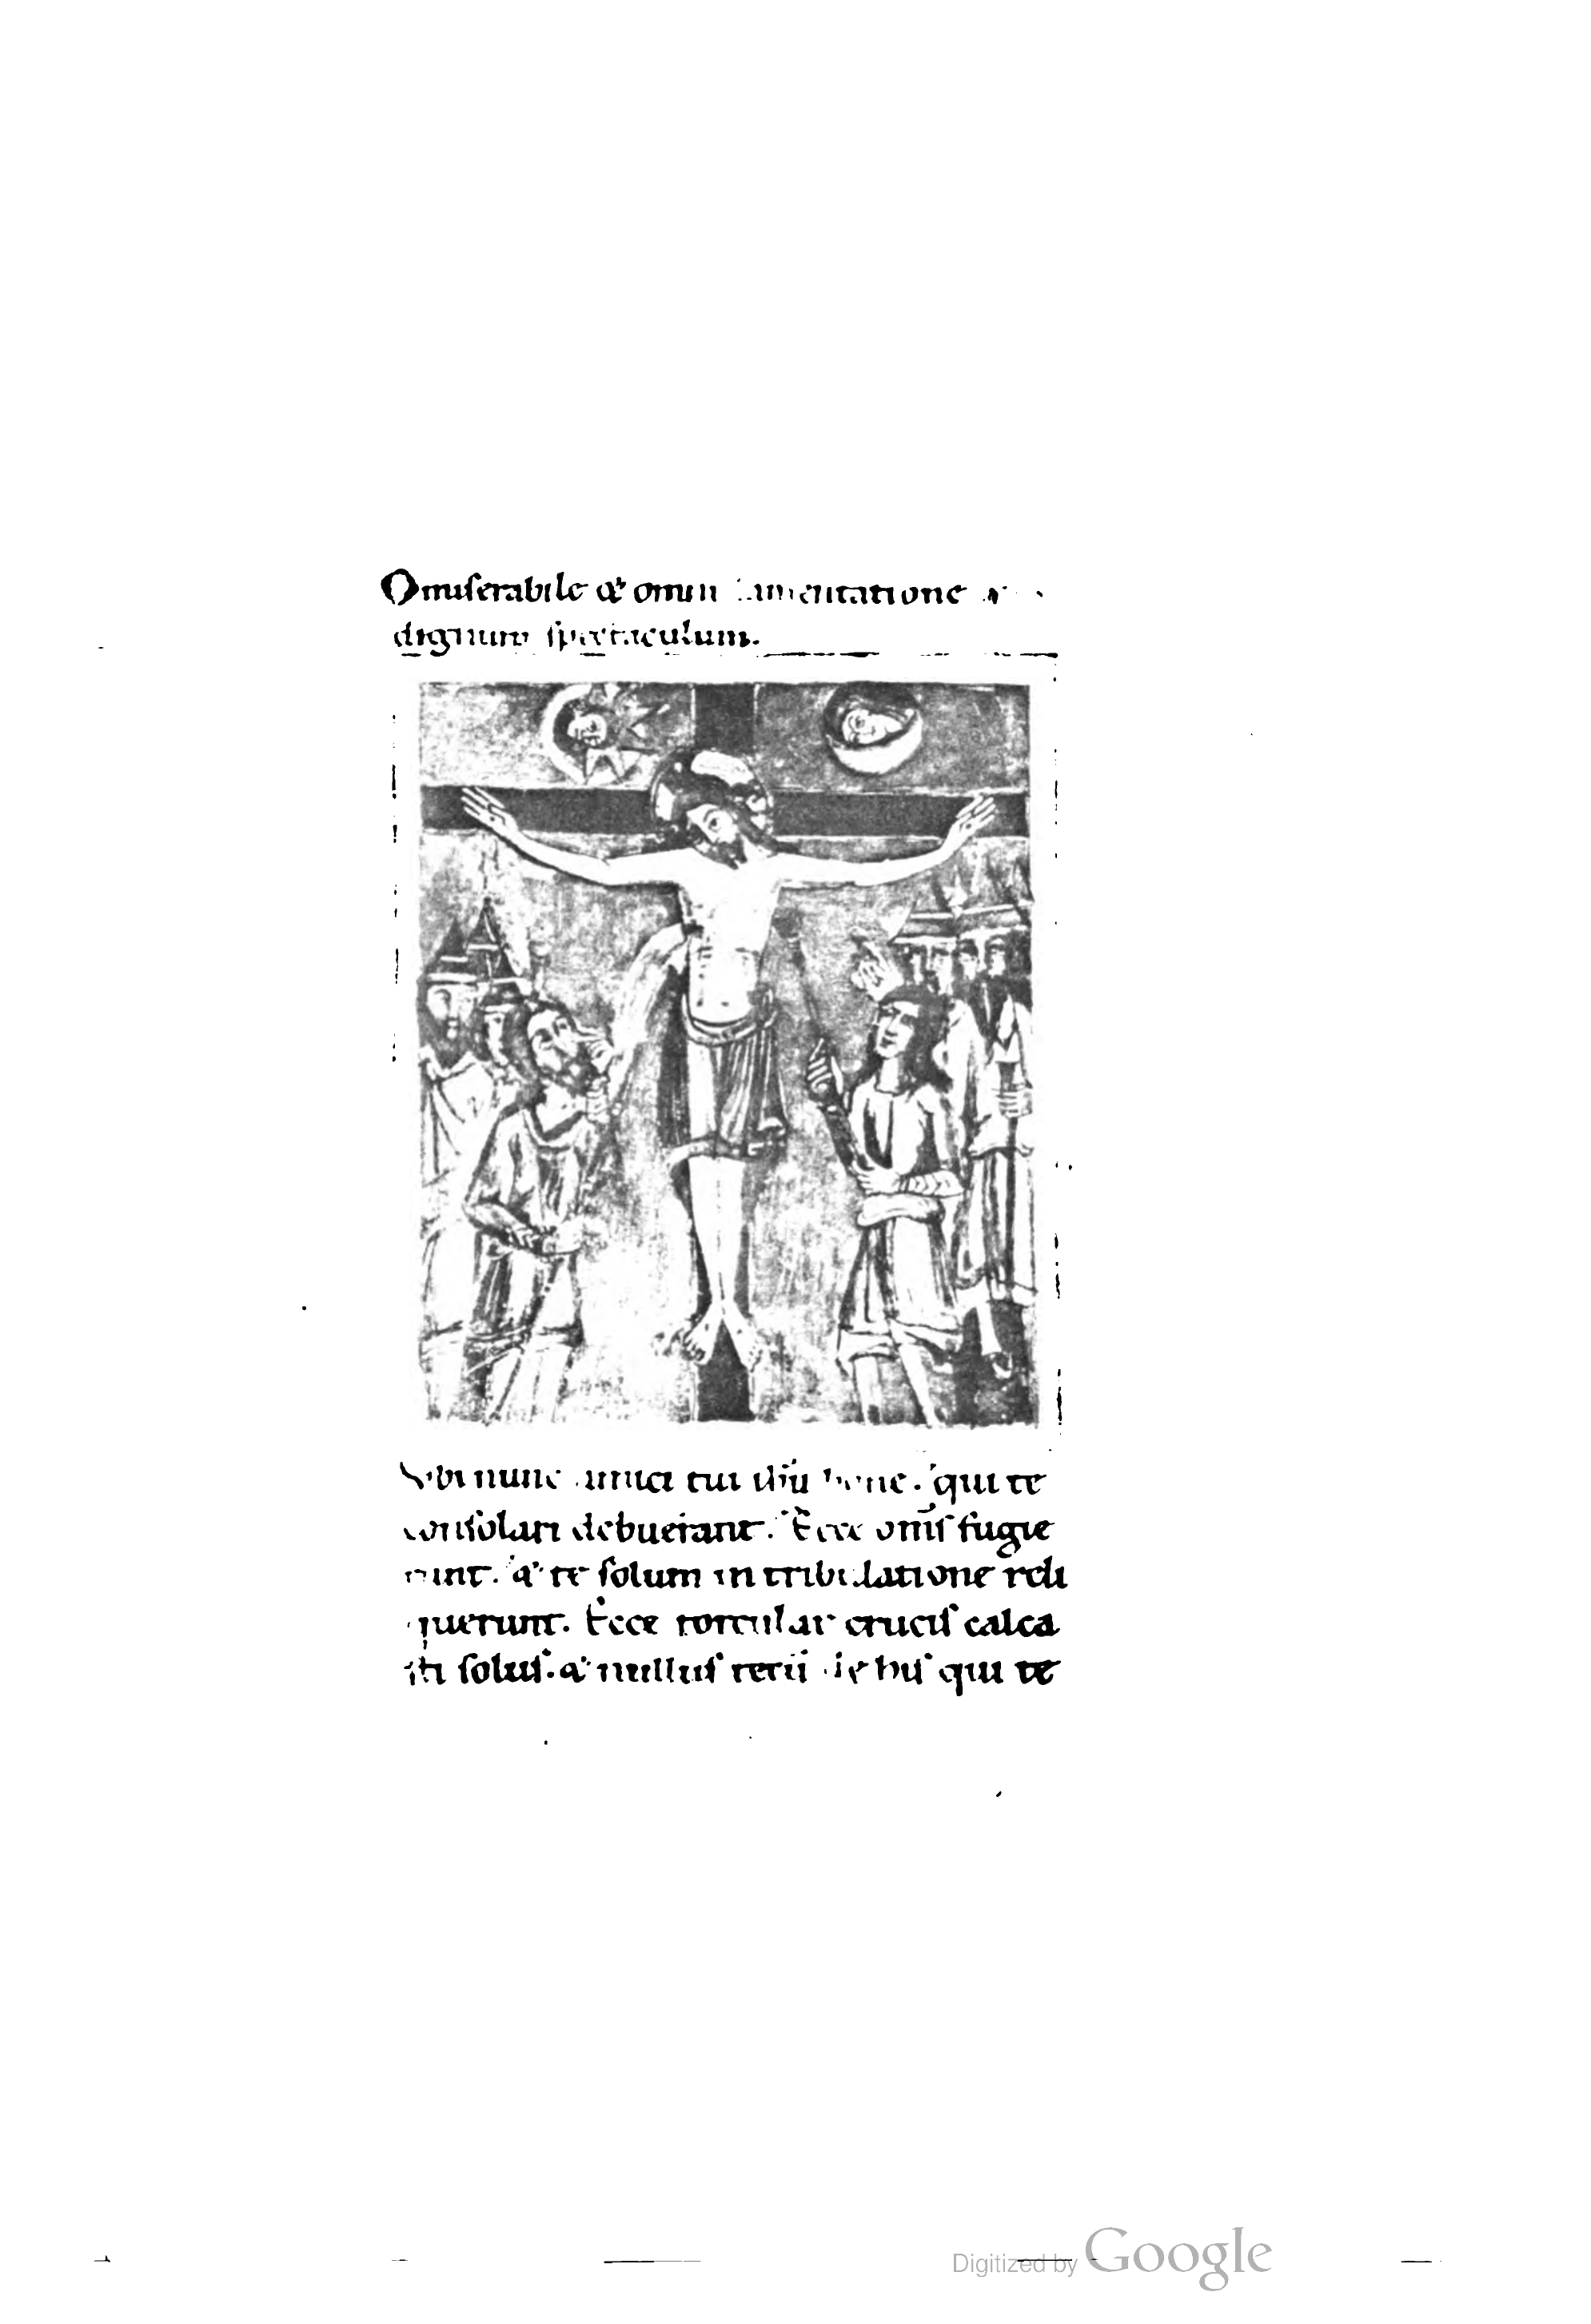 O miserabile & omni lamentatione
dignum spectaculum.
Vbi nunc amici tui ihu bone. qui te
consolari debuerant. Ecce omis fugie
runt. & te solum in tribulatione reli
querunt. Ecce torcular crucis calca
sti solus. & nullus qui te
Digitized by Google